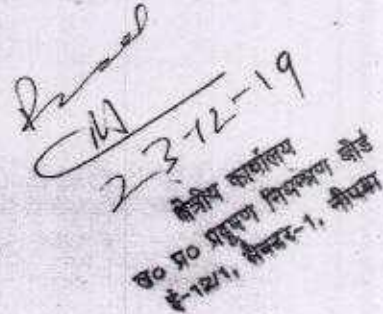 23-12-19
क्षेत्रीय कार्यालय
उ० प्र० प्रदूषण नियन्त्रण बोर्ड
ई-12/1, सैक्टर-1, नौएडा